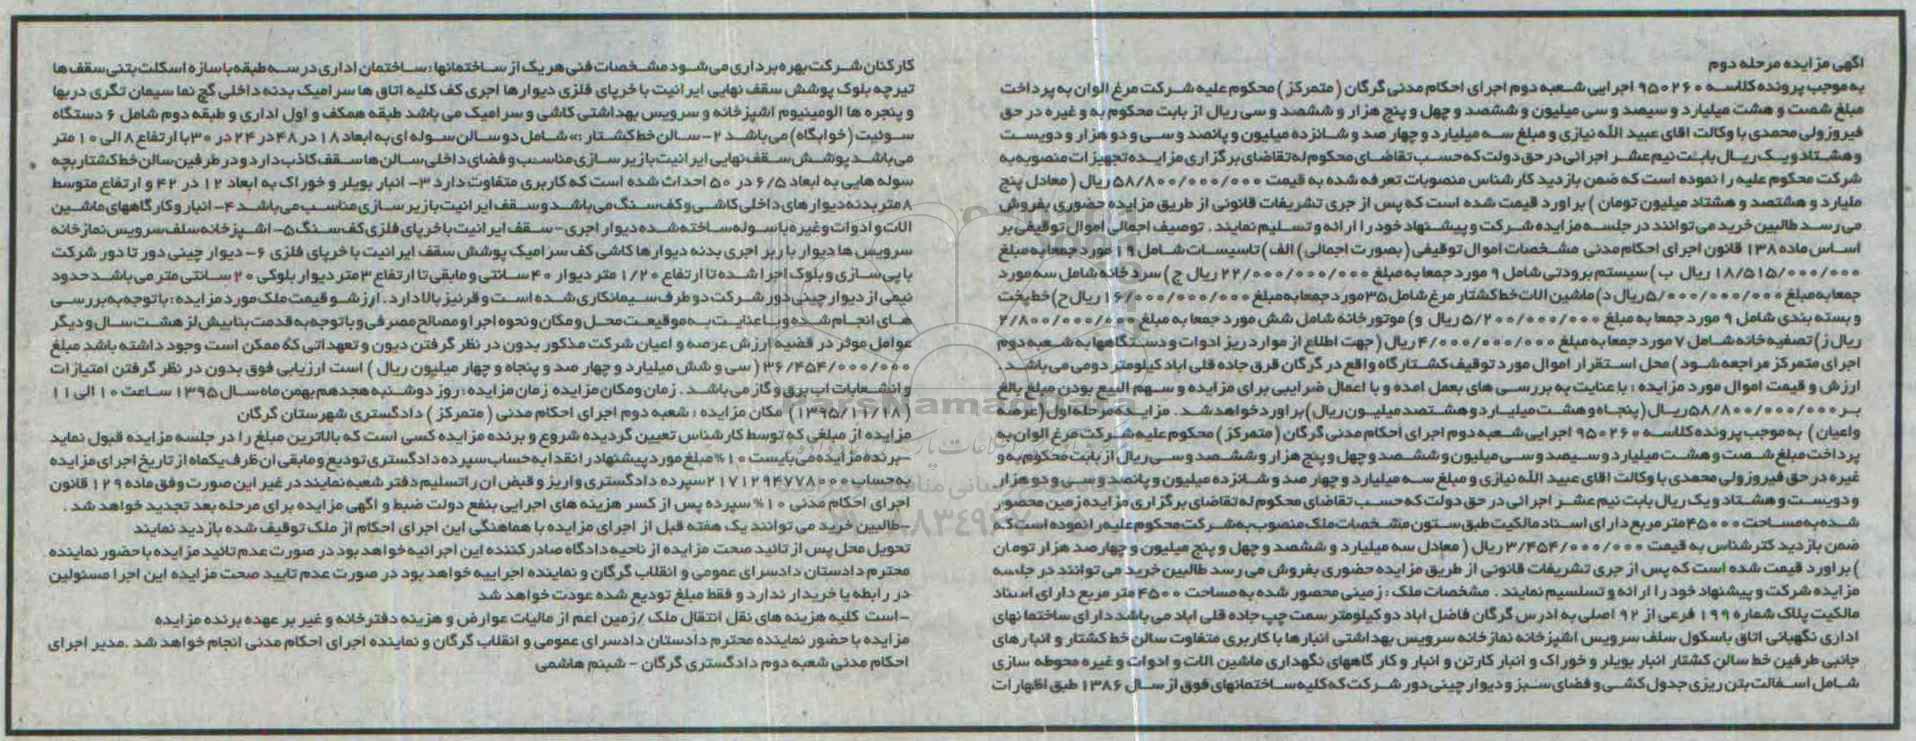 اگهی مزایده مرحله دوم
به موجب پرونده کلاسه ۹۵۰۲۶۰ اجرایی شعبه دوم اجرای احکام مدنی گرگان (متمرکز) محکوم علیه شرکت مرغ الوان به پرداخت
مبلغ شصت و هشت میلیارد و سیصد و سی میلیون و ششصد و چهل و پنج هزار و ششصد و سی ریال از بابت محکوم به و غیره در حق
فیروز ولی محمدی با وکالت اقای عبید الله نیازی و مبلغ سه میلیارد و چهار صد و شانزده میلیون و پانصد و سی و دو هزار و دویست
و هشتاد و یک ریال بابت نیم عشر اجرائی در حق دولت که حسب تقاضای محکوم له تقاضای برگزاری مزایده تجهیزات منصوبه به
شرکت محکوم علیه را نموده است که ضمن بازدید کارشناس منصوبات تعرفه شده به قیمت ۵۸/۸۰۰/۰۰۰/۰۰۰ ریال ( معادل پنج
ملیارد و هشتصد و هشتاد میلیون تومان ) براورد قیمت شده است که پس از جری تشریفات قانونی از طریق مزایده حضوری بفروش
می رسد طالبین خرید می توانند در جلسه مزایده شرکت و پیشنهاد خود را ارائه و تسلیم نمایند . توصیف اجمالی اموال توقیفی بر
اساس ماده ۱۳۸ قانون اجرای احکام مدنی مشخصات اموال توقیفی (بصورت اجمالی) الف) تاسیسات شامل ۱۹ مورد جمعا به مبلغ
۱۸/۵۱۵/۰۰۰/۰۰۰ ریال ب) سیستم برودتی شامل ۹ مورد جمعا به مبلغ ۲۲/۰۰۰/۰۰۰/۰۰۰ ریال ج) سرد خانه شامل سه مورد
جمعا به مبلغ ۵/۰۰۰/۰۰۰/۰۰۰ ریال د) ماشین الات خط کشتار مرغ شامل ۳۵ مورد جمعا به مبلغ ۱۶/۰۰۰/۰۰۰/۰۰۰ ریال ح) خط پخت
و بسته بندی شامل ۹ مورد جمعا به مبلغ ۵/۲۰۰/۰۰۰/۰۰۰ ریال و) موتور خانه شامل شش مورد جمعا به مبلغ ۲/۸۰۰/۰۰۰/۰۰۰
ریال ز) تصفیه خانه شامل ۷ مورد جمعا به مبلغ ۴/۰۰۰/۰۰۰/۰۰۰ ریال (جهت اطلاع از موارد ریز ادوات و دستگاهها به شعبه دوم
اجرای متمرکز مراجعه شود) محل استقرار اموال مورد توقیف کشتارگاه واقع در گرگان قرق جاده قلی اباد کیلومتر دو می باشد .
ارزش و قیمت اموال مورد مزایده : با عنایت به بررسی های بعمل امده و با اعمال ضرایبی برای مزایده و سهم البیع بودن مبلغ بالغ
بر ۵۸/۸۰۰/۰۰۰/۰۰۰ ریال ( پنجاه و هشت میلیارد و هشتصد میلیون ریال) براورد خواهد شد . مزایده مرحله اول (عرصه
واعیان ) به موجب پرونده کلاسه ۹۵۰۲۶۰ اجرایی شعبه دوم اجرای احکام مدنی گرگان ( متمرکز ) محکوم علیه شرکت مرغ الوان به
پرداخت مبلغ شصت و هشت میلیارد و سیصد و سی میلیون و ششصد و چهل و پنج هزار و ششصد و سی ریال از بابت محکوم به و
غیره در حق فیروز ولی محمدی با وکالت اقای عبید الله نیازی و مبلغ سه میلیارد و چهار صد و شانزده میلیون و پانصد و سی و دو هزار
و دویست و هشتاد و یک ریال بابت نیم عشر اجرائی در حق دولت که حسب تقاضای محکوم له تقاضای برگزاری مزایده زمین محصور
شده به مساحت ۴۵۰۰۰ متر مربع دارای اسناد مالکیت طبق ستون مشخصات ملک منصوب به شرکت محکوم علیه را نموده است که
ضمن بازدید کترشناس به قیمت ۳/۴۵۴/۰۰۰/۰۰۰ ریال ( معادل سه میلیارد و ششصد و چهل و پنج میلیون و چهار صد هزار تومان
) براورد قیمت شده است که پس از جری تشریفات قانونی از طریق مزایده حضوری بفروش می رسد طالبین خرید می توانند در جلسه
مزایده شرکت و پیشنهاد خود را ارائه و تسلیم نمایند . مشخصات ملک : زمینی محصور شده به مساحت ۴۵۰۰ متر مربع دارای اسناد
مالکیت پلاک شماره ۱۹۹ فرعی از ۹۲ اصلی به ادرس گرگان فاضل اباد دو کیلومتر سمت چپ جاده قلی اباد می باشد دارای ساختما نهای
اداری نگهبانی اتاق باسکول سلف سرویس اشپزخانه نماز خانه سرویس بهداشتی انبار ها با کاربری متفاوت سالن خط کشتار و انبار های
جانبی طرفین خط سالن کشتار انبار بویلر و خوراک و انبار کارتن و انبار و کار گاههای نگهداری ماشین الات و ادوات و غیره محوطه سازی
شامل اسفالت بتن ریزی جدول کشی و فضای سبز و دیوار چینی دور شرکت که کلیه ساختمانهای فوق از سال ۱۳۸۶ طبق اظهارات
کارکنان شرکت بهره برداری می شود مشخصات فنی هر یک از ساختمانها : ساختمان اداری در سه طبقه با سازه اسکلت بتنی سقف ها
تیرچه بلوک پوشش سقف نهایی ایرانیت با خرپای فلزی دیوارها اجری کف کلیه اتاق ها سرامیک بدنه داخلی گچ نما سیمان تگری دربها
و پنجره ها الومینیوم اشپزخانه و سرویس بهداشتی کاشی و سرامیک می باشد طبقه همکف و اول اداری و طبقه دوم شامل ۶ دستگاه
سوئیت (خوابگاه) می باشد ۲- سالن خط کشتار :» شامل دو سالن سوله ای به ابعاد ۱۸ در ۴۸ در ۲۴ در ۳۰ با ارتفاع ۸ الی ۱۰ متر
می باشد پوشش سقف نهایی ایرانیت با زیر سازی مناسب و فضای داخلی سالن ها سقف کاذب دارد و در طرفین سالن خط کشتار بچه
سوله هایی به ابعاد ۶/۵ در ۵۰ احداث شده است که کاربری متفاوت دارد ۳- انبار بویلر و خوراک به ابعاد ۱۲ در ۴۲ و ارتفاع متوسط
۸ متر بدنه دیوار های داخلی کاشی و کف سنگ می باشد و سقف ایرانیت با زیر سازی مناسب می باشد ۴- انبار و کار گاههای ماشین
الات و ادوات و غیره با سوله ساخته شده دیوار اجری - سقف ایرانیت با خرپای فلزی کف سنگ ۵- اشپزخانه سلف سرویس نماز خانه
سرویس ها دیوار با ربر اجری بدنه دیوار ها کاشی کف سرامیک پوشش سقف ایرانیت با خرپای فلزی ۶- دیوار چینی دور تا دور شرکت
با پی سازی و بلوک اجرا شده تا ارتفاع ۱/۲۰ متر دیوار ۴۰ سانتی و مابقی تا ارتفاع ۳ متر دیوار بلوکی ۲۰ سانتی متر می باشد حدود
نیمی از دیوار چینی دور شرکت دو طرف سیمانکاری شده است و قرنیز بالا دارد . ارزش و قیمت ملک مورد مزایده : با توجه به بررسی
های انجام شده و با عنایت به موقیعت محل و مکان و نحوه اجرا و مصالح مصرفی و با توجه به قدمت بنا بیش از هشت سال و دیگر
عوامل موثر در قضیه ارزش عرصه و اعیان شرکت مذکور بدون در نظر گرفتن دیون و تعهداتی که ممکن است وجود داشته باشد مبلغ
۳۶/۴۵۴/۰۰۰/۰۰۰ ( سی و شش میلیارد و چهار صد و پنجاه و چهار میلیون ریال ) است ارزیابی فوق بدون در نظر گرفتن امتیازات
و انشعابات اب برق و گاز می باشد . زمان و مکان مزایده زمان مزایده : روز دوشنبه هجدهم بهمن ماه سال ۱۳۹۵ ساعت ۱۰ الی ۱۱
(۱۳۹۵/۱۱/۱۸) مکان مزایده : شعبه دوم اجرای احکام مدنی ( متمرکز ) دادگستری شهرستان گرگان
مزایده از مبلغی که توسط کارشناس تعیین گردیده شروع و برنده مزایده کسی است که بالاترین مبلغ را در جلسه مزایده قبول نماید
-برنده مزایده می بایست ۱۰% مبلغ مورد پیشنهاد را نقدا به حساب سپرده دادگستری تودیع و مابقی ان ظرف یکماه از تاریخ اجرای مزایده
به حساب ۲۱۷۱۲۹۴۷۷۸۰۰۰ سپرده دادگستری واریز و قبض ان را تسلیم دفتر شعبه نمایند در غیر این صورت وفق ماده ۱۲۹ قانون
اجرای احکام مدنی ۱۰% سپرده پس از کسر هزینه های اجرایی بنفع دولت ضبط و اگهی مزایده برای مرحله بعد تجدید خواهد شد .
-طالبین خرید می توانند یک هفته قبل از اجرای مزایده با هماهنگی این اجرای احکام از ملک توقیف شده بازدید نمایند
تحویل محل پس از تائید صحت مزایده از ناحیه دادگاه صادر کننده این اجرائیه خواهد بود در صورت عدم تائید مزایده با حضور نماینده
محترم دادستان دادسرای عمومی و انقلاب گرگان و نماینده اجراییه خواهد بود در صورت عدم تایید صحت مزایده این اجرا مسئولین
در رابطه با خریدار ندارد و فقط مبلغ تودیع شده عودت خواهد شد
-است کلیه هزینه های نقل انتقال ملک /زمین اعم از مالیات عوارض و هزینه دفترخانه و غیر بر عهده برنده مزایده
مزایده با حضور نماینده محترم دادستان دادسرای عمومی و انقلاب گرگان و نماینده اجرای احکام مدنی انجام خواهد شد . مدیر اجرای
احکام مدنی شعبه دوم دادگستری گرگان - شبنم هاشمی
ParsNamadData